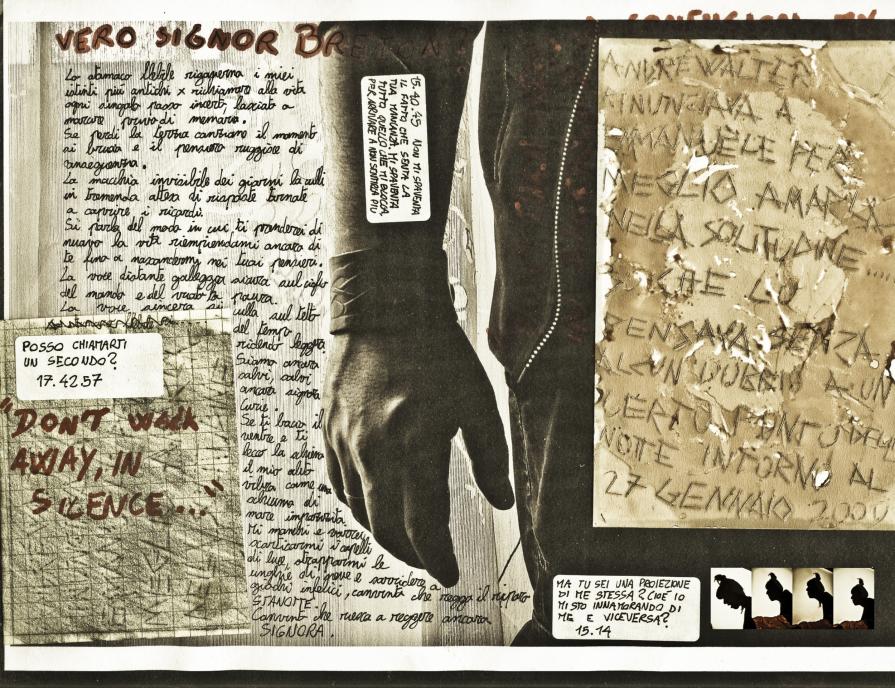 VERO SIGNOR BRETON?
Lo stomaco flebile rigaverna i miei
istinti più antichi x richiamare alla vita
ogni singolo passo incerto, lasciato a
marcire, privo di memoria.
Se perdi la terra canviamo il momento
si brucia e il pensiero ruggisce di
La macchia invisibile dei giorni la culli
in tremenda attesa di risposte tornate
a coprire i ricordi.
Si parla del modo in cui ti prenderei di
nuovo la vita riempiendomi ancora di
te fino a nascondermi nei tuoi pensieri.
La voce distante galleggia sicura sul ciglio
del mondo e del vuoto ta paura.
La voce sincera si culla sul tetto
del tempo
ridendo leggera
Siamo ancora
salvi, salvi
ancora signora
Curie.
Se ti bacio il
ventre e ti
lecco la schiena
il mio alito
vibra come una
schiuma di
mare improvvisa.
Mi manchi e vorrei
scorticarmi i capelli
di luce, strapparmi le
unghie di neve e sorridere a
giochi infelici, convinto che regga il riparo
STANOTTE.
Convinto che riesca a reggere ancora
SIGNORA.
15.40.45 NON MI SPAVENTA
IL FATTO CHE SENTA LA
TUA MANCANZA MI SPAVENTA
TUTTO QUELLO CHE MI BLOCCA
PER ARRIVARE A NON SENTIRLA PIÙ
POSSO CHIAMARTI
UN SECONDO?
17.42.57
"DON'T WALK
AWAY, IN
SILENCE..."
ANDRÉ WALTER
RINUNCIAVA A
EMMANUÈLE PER
MEGLIO AMARLA
NELLA SOLITUDINE...
POICHÉ LO
PENSAVA SENZA
ALCUN DUBBIO A UN
CERTO PUNTO DELLA
NOTTE INTORNO AL
27 GENNAIO 2000
MA TU SEI UNA PROIEZIONE
DI ME STESSA? CIOÈ IO
MI STO INNAMORANDO DI
ME E VICEVERSA?
15.14